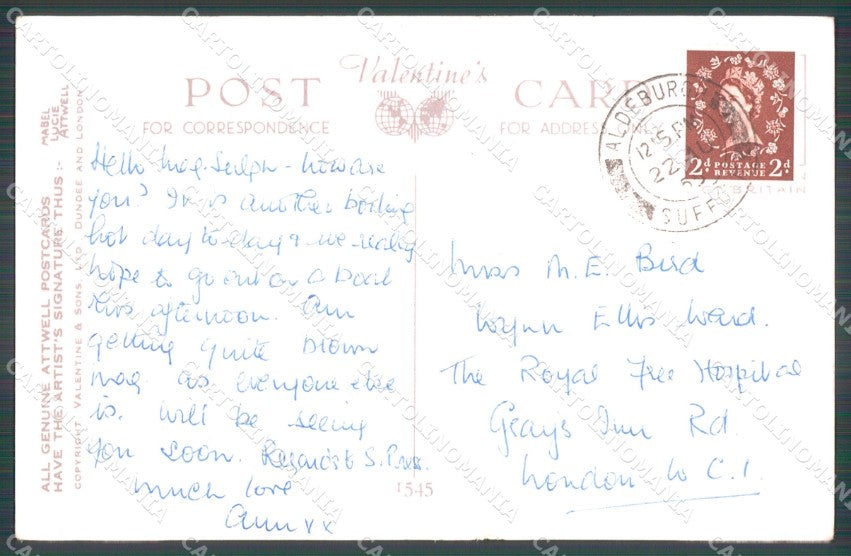 POST Valentine's CARD
FOR CORRESPONDENCE FOR ADDRESS ONLY
ALL GENUINE ATTWELL POSTCARDS
HAVE THE ARTIST'S SIGNATURE THUS :-
MABEL
LUCIE
ATTWELL
COPYRIGHT VALENTINE & SONS, LTD. DUNDEE AND LONDON
Hello Mag. - how are
you? It is another boiling
hot day to-day & we really
hope to go out on a boat
this afternoon. Am
getting quite brown
Mag as everyone else
is. Will be seeing
you soon. Regards to S.
Much love
Ann xx
1545
ALDEBURGH
12 15 PM
22
SUFFOLK
2d POSTAGE REVENUE 2d
BRITAIN
Miss M. E. Bird
Wynn Ellis Ward.
The Royal Free Hospital
Grays Inn Rd.
London W.C.1.
CARTOLINOMANIA